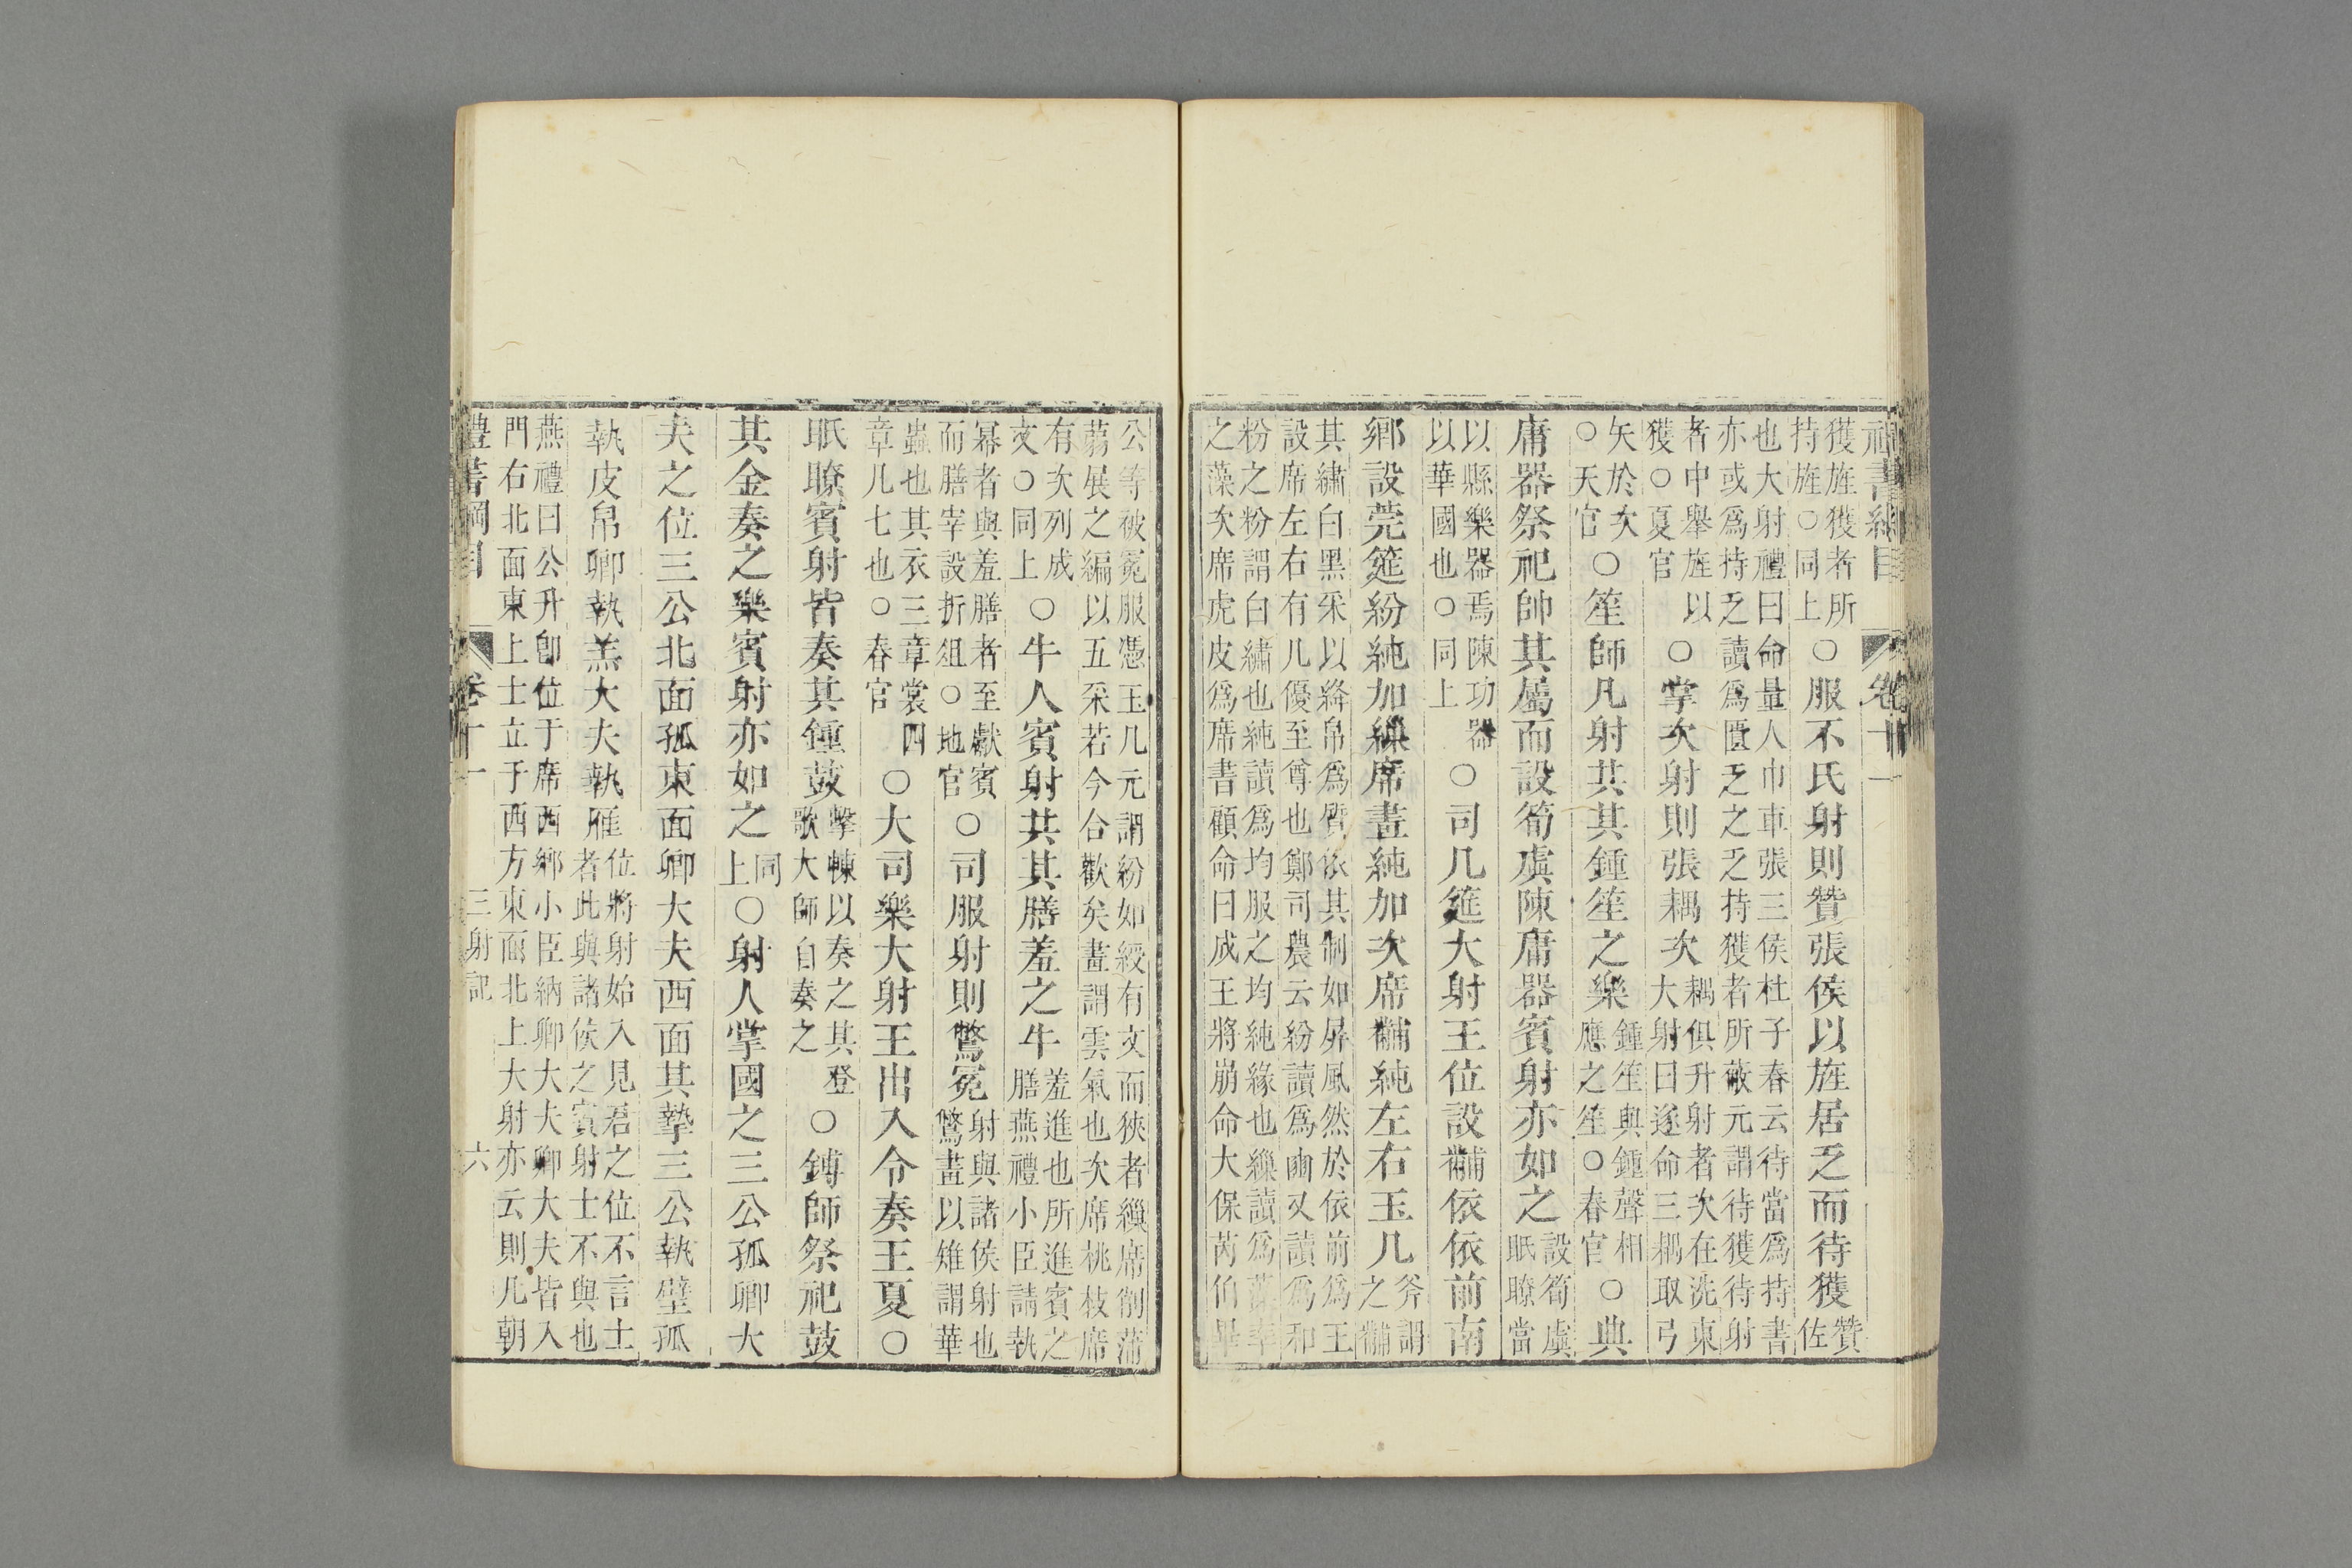 禮書綱目 卷十一
獲旌獲者所
持旌○同上
○服不氏射則贊張侯以旌居乏而待獲
贊
佐
也大射禮曰命量人巾車張三侯杜子春云待當爲持書
亦或爲持乏讀爲匱乏之乏持獲者所蔽元謂待獲待射
者中舉旌以
獲○夏官
○掌次射則張耦次
耦俱升射者次在洗東
大射曰遂命三耦取弓
矢於次
○天官
○笙師凡射共其鍾笙之樂
鍾笙與鍾聲相
應之笙○春官
○典
庸器祭祀帥其屬而設筍虡陳庸器賓射亦如之
設筍虡
眂瞭當
以縣樂器焉陳功器
以華國也○同上
○司几筵大射王位設黼依依前南
鄉設莞筵紛純加繅席畫純加次席黼純左右玉几
斧謂
之黼
其繡白黑采以絳帛爲質依其制如屏風然於依前爲王
設席左右有几優至尊也鄭司農云紛讀爲豳又讀爲和
粉之粉謂白繡也純讀爲均服之均純緣也繅讀爲藻率
之藻次席虎皮爲席書顧命曰成王將崩命大保芮伯畢
公等被冕服憑玉几元謂紛如綬有文而狹者繅席削蒲
蒻展之編以五采若今合歡矣畫謂雲氣也次席桃枝席
有次列成
文○同上
○牛人賓射共其膳羞之牛
羞進也所進賓之
膳燕禮小臣請執
冪者與羞膳者至獻賓
而膳宰設折俎○地官
○司服射則鷩冕
射與諸侯射也
鷩畫以雉謂華
蟲也其衣三章裳四
章凡七也○春官
○大司樂大射王出入令奏王夏○
眂瞭賓射皆奏其鍾鼓
擊朄以奏之其登
歌大師自奏之
○鎛師祭祀鼓
其金奏之樂賓射亦如之
同
上
○射人掌國之三公孤卿大
夫之位三公北面孤東面卿大夫西面其摯三公執璧孤
執皮帛卿執羔大夫執雁
位將射始入見君之位不言士
者此與諸侯之賓射士不與也
燕禮曰公升卽位于席西鄉小臣納卿大夫卿大夫皆入
門右北面東上士立于西方東面北上大射亦云則凡朝
禮書綱目 卷十一 三射記 六